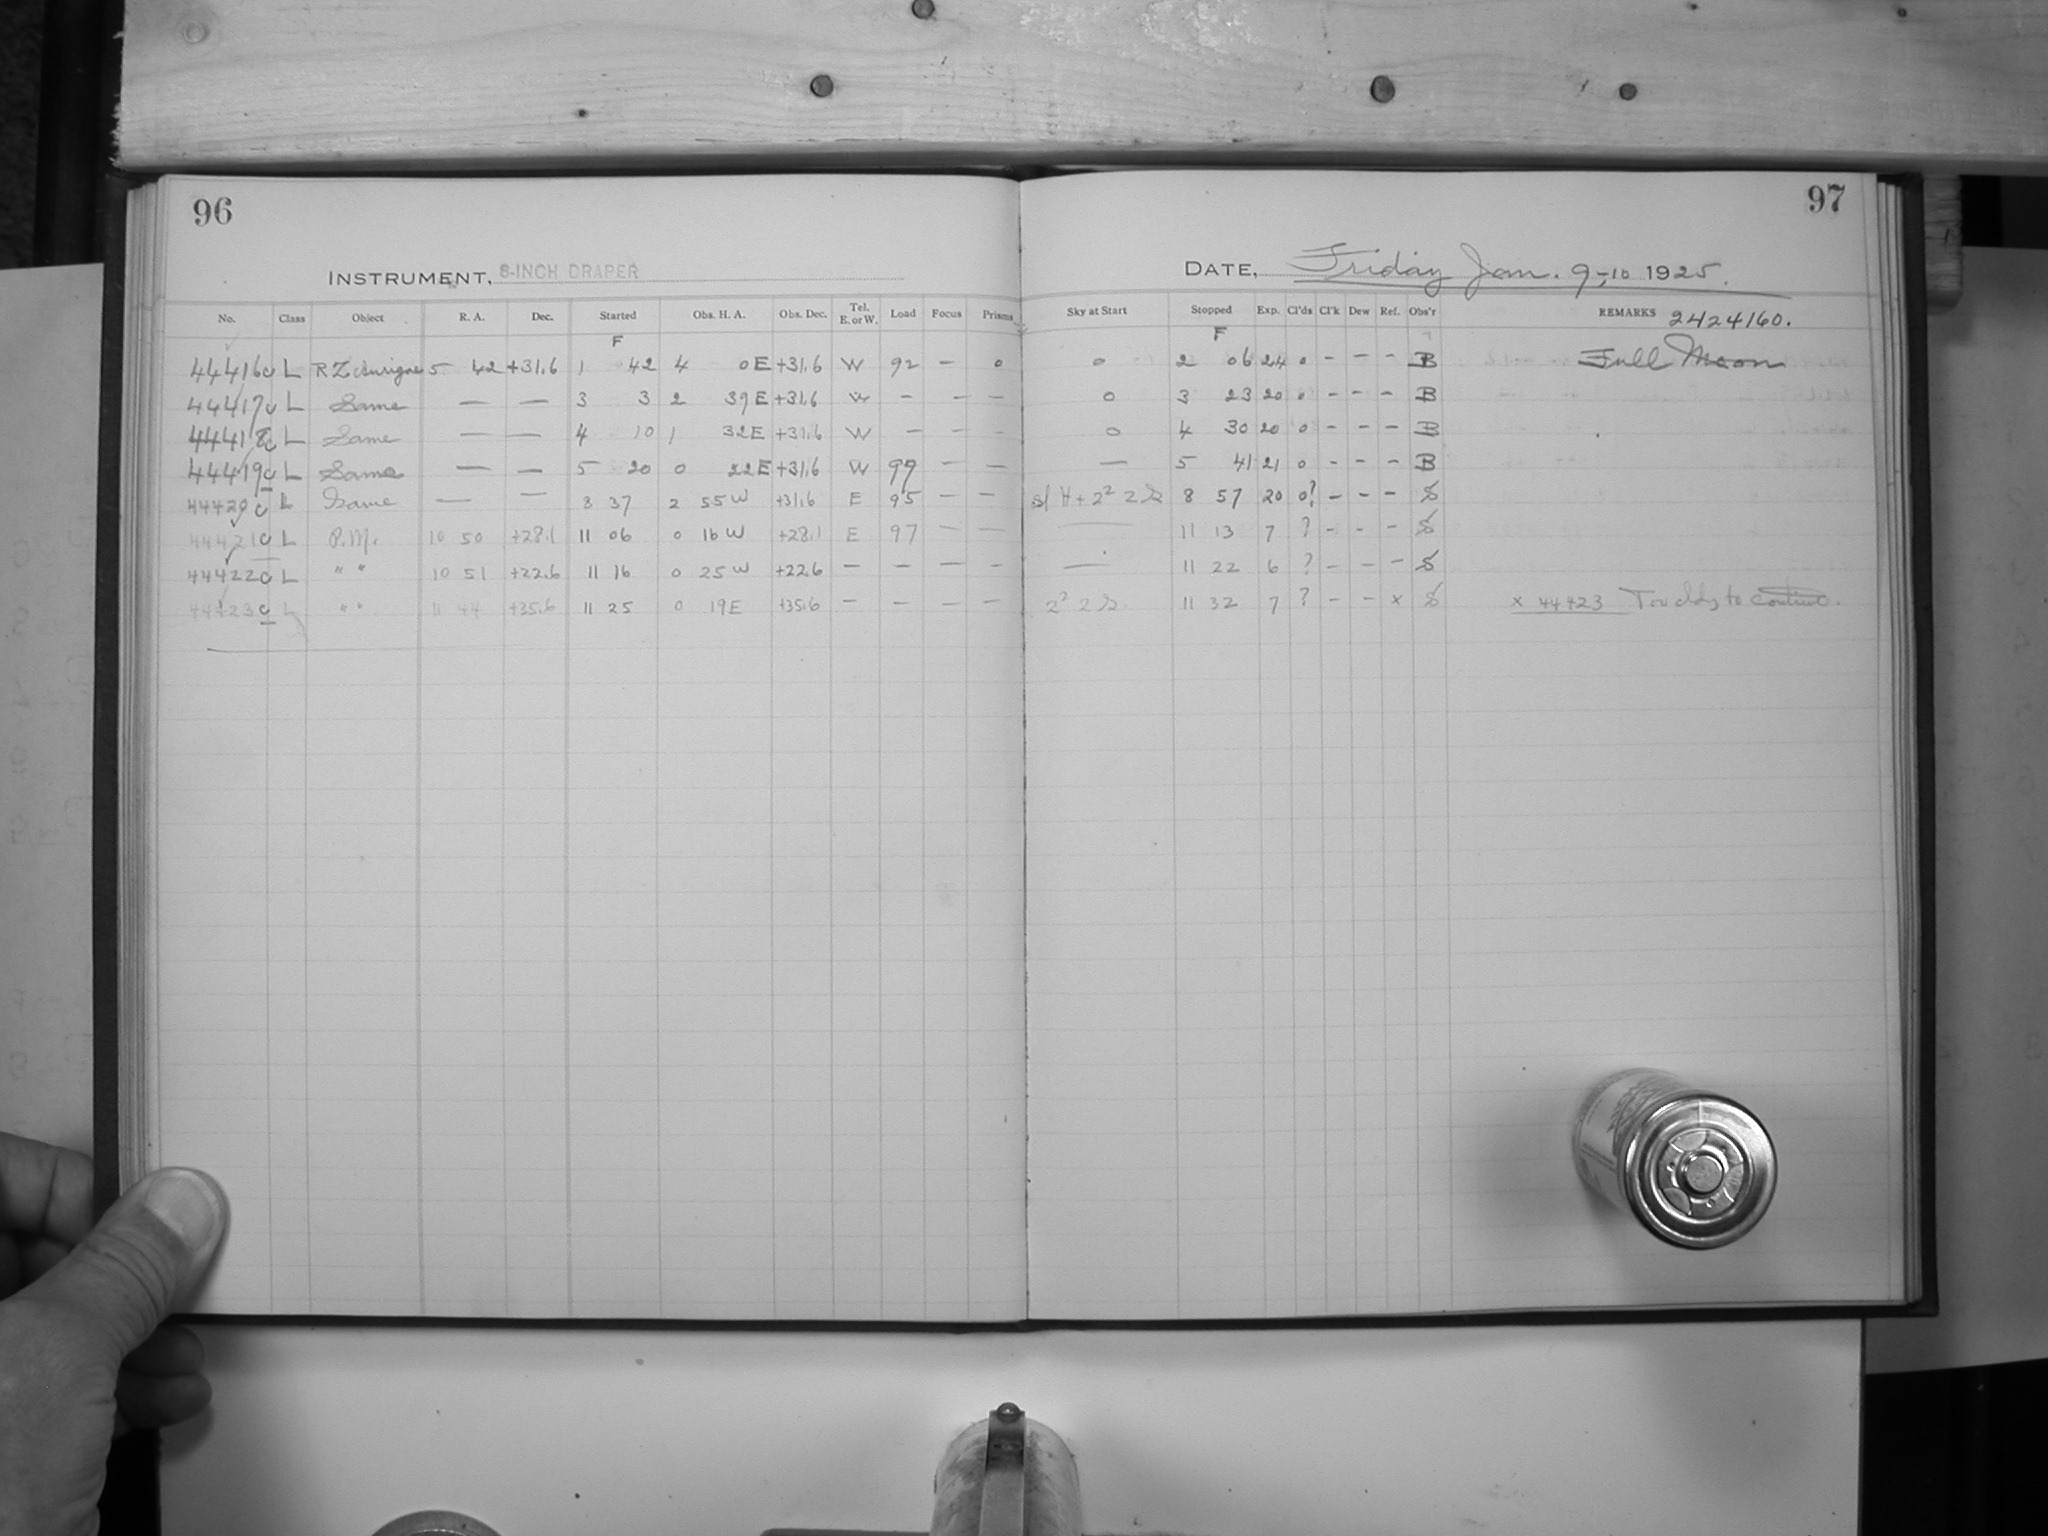 96
INSTRUMENT, 8-INCH DRAPER
No. Class Object R. A. Dec. Started Obs. H. A. Obs. Dec. Tel. E. or W. Load Focus Prisms
F
44416c L RZ Aurigae 5 42 +31.6 1 42 4 0E +31.6 W 92 – o
44417c L Same — — 3 3 2 39E +31.6 W – – –
44418c L Same — — 4 10 1 32E +31.6 W – – –
44419c L Same — — 5 20 0 22E +31.6 W 99 – –
44420c L Same — — 8 37 2 55W +31.6 E 95 – –
44421c L P.M. 10 50 +28.1 11 06 0 16W +28.1 E 97 – –
44422c L " " 10 51 +22.6 11 16 0 25W +22.6 – – – –
44423c L " " 11 44 +35.6 11 25 0 19E +35.6 – – – –
97
DATE, Friday Jan. 9-10 1925.
Sky at Start Stopped Exp. Cl'ds Cl'k Dew Ref. Obs'r REMARKS 2424160.
F
o 2 06 24 o – – – B Full Moon
o 3 23 20 o – – – B
o 4 30 20 o – – – B
— 5 41 21 o – – – B
2² 8 57 20 o? – – – S
— 11 13 7 ? – – – S
— 11 22 6 ? – – – S
2² 11 32 7 ? – – x S x 44423 Too cldy to continue.